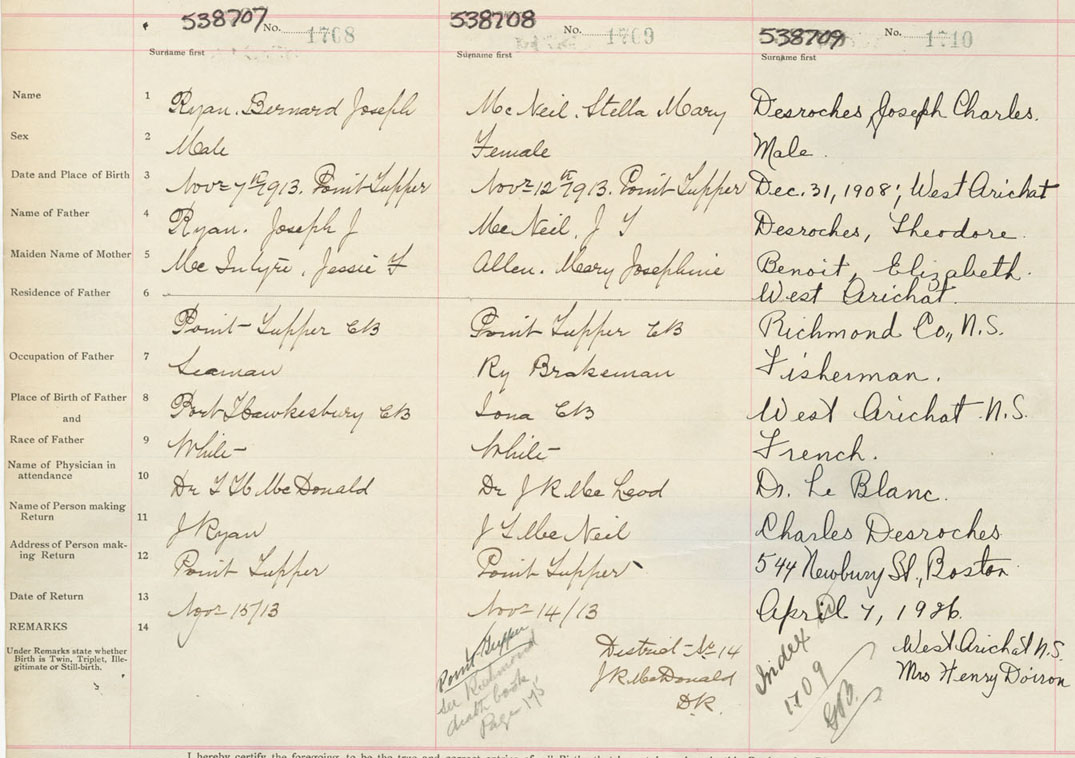 538707 No. 1708
538708 No. 1709
538709 No. 1710
Surname first
Surname first
Surname first
Name 1 Ryan. Bernard Joseph McNeil. Stella Mary Desroches, Joseph Charles.
Sex 2 Male Female Male.
Date and Place of Birth 3 Novr 7th 1913. Point Tupper Novr 12th 1913. Point Tupper Dec. 31, 1908; West Arichat
Name of Father 4 Ryan. Joseph J McNeil, J Desroches, Theodore.
Maiden Name of Mother 5 McIntyre, Jessie F Allen. Mary Josephine Benoit, Elizabeth.
Residence of Father 6 West Arichat.
Point Tupper CB Point Tupper CB Richmond Co., N.S.
Occupation of Father 7 Seaman Ry Brakeman Fisherman.
Place of Birth of Father 8 Port Hawkesbury CB Iona CB West Arichat N.S.
and
Race of Father 9 White White French.
Name of Physician in
attendance 10 Dr McDonald Dr J R McLeod Dr. Le Blanc.
Name of Person making
Return 11 J Ryan J McNeil Charles Desroches
Address of Person mak-
ing Return 12 Point Tupper Point Tupper 544 Newbury St., Boston
Date of Return 13 Novr 15/13 Novr 14/13 April 7, 1926.
REMARKS 14
Under Remarks state whether
Birth is Twin, Triplet, Ille-
gitimate or Still-birth.
Point Tupper
see Richmond
death book
Page 175
District No 14
J R McDonald
D.R.
Index
1709
West Arichat N.S.
Mrs Henry Doiron
I hereby certify the foregoing to be the true and correct entries of all Births